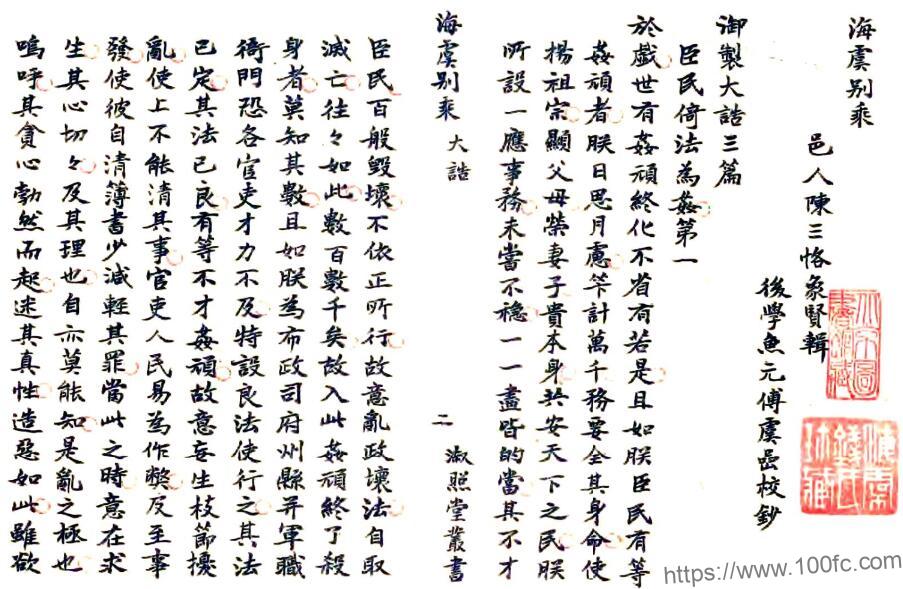 海虞別乘
邑人陳三恪象賢輯
後學魚元傅虞嵒校鈔
御製大誥三篇
臣民倚法為姦第一
於戲世有姦頑終化不省有若是且如朕臣民有等
姦頑者朕日思月慮筭計萬千務要全其身命使
揚祖宗顯父母榮妻子貴本身共安天下之民朕
所設一應事務未當不穩一一盡皆的當其不才
海虞別乘 大誥 二 淑照堂叢書
臣民百般毀壞不依正所行故意亂政壞法自取
滅亡往々如此數百數千矣故入此姦頑終了殺
身者莫知其數且如朕為布政司府州縣并軍職
衙門恐各官吏才力不及特設良法使行之其法
已定其法已良有等不才姦頑故意妄生枝節擾
亂使上不能清其事官吏人民易為作弊及至事
發使彼自清薄書少減輕其罪當此之時意在求
生其心切々及其理也自亦莫能知是亂之極也
嗚呼其貪心勃然而起迷其真性造惡如此雖欲
https://www.100fc.com